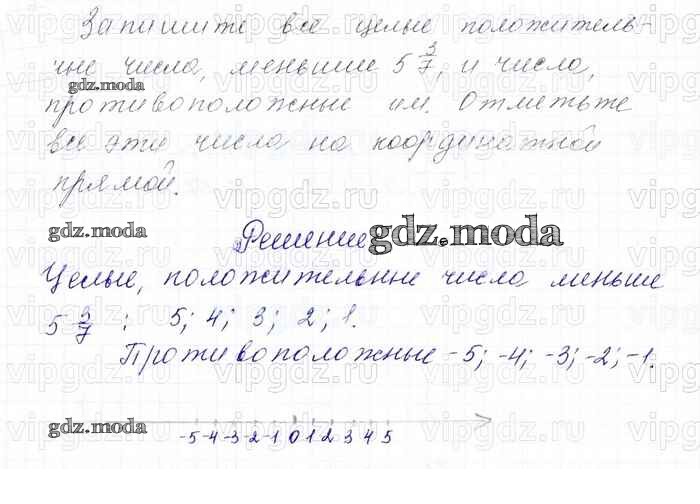 Запишите все целые положитель-
ные числа, меньшие 5 3/7, и числа,
gdz.moda
противоположные им. Отметьте
все эти числа на координатной
прямой.
gdz.moda
Решение
gdz.moda
Целые, положительные числа меньше
5 3/7 : 5; 4; 3; 2; 1.
Противоположные -5; -4; -3; -2; -1.
gdz.moda
-5 -4 -3 -2 -1 0 1 2 3 4 5
vipgdz.ru